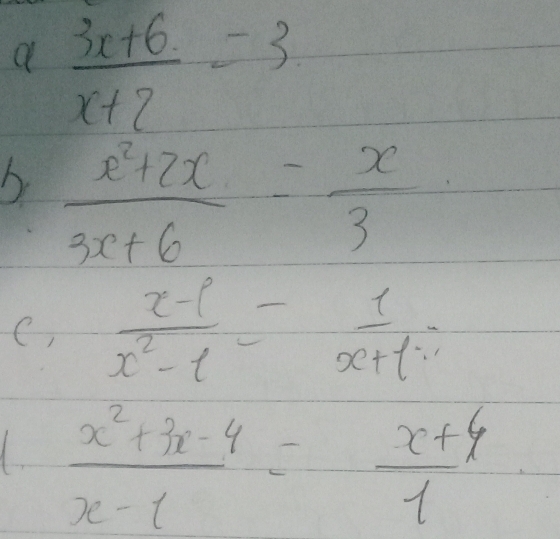 a. (3x+6)/(x+2) = 3.
b. (x²+2x)/(3x+6) = x/3.
c, (x-1)/(x²-1) = 1/(x+1).
d. (x²+3x-4)/(x-1) = (x+4)/1.